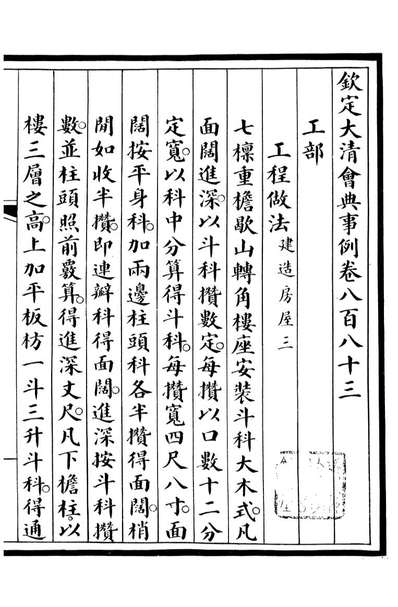 欽定大清會典事例卷八百八十三
工部
工程做法建造房屋三
七檁重檐歇山轉角樓座安裝斗科大木式。凡
面闊進深。以斗科攢數定。每攢以口數十二分
定寬。以科中分算得斗科。每攢寬四尺八寸。面
闊按平身科。加兩邊柱頭科各半攢得面闊。梢
閒如收半攢。即連瓣科得面闊。進深按斗科攢
數。並柱頭照前覈算。得進深丈尺。凡下檐柱。以
樓三層之高。上加平板枋一斗三升斗科。得通